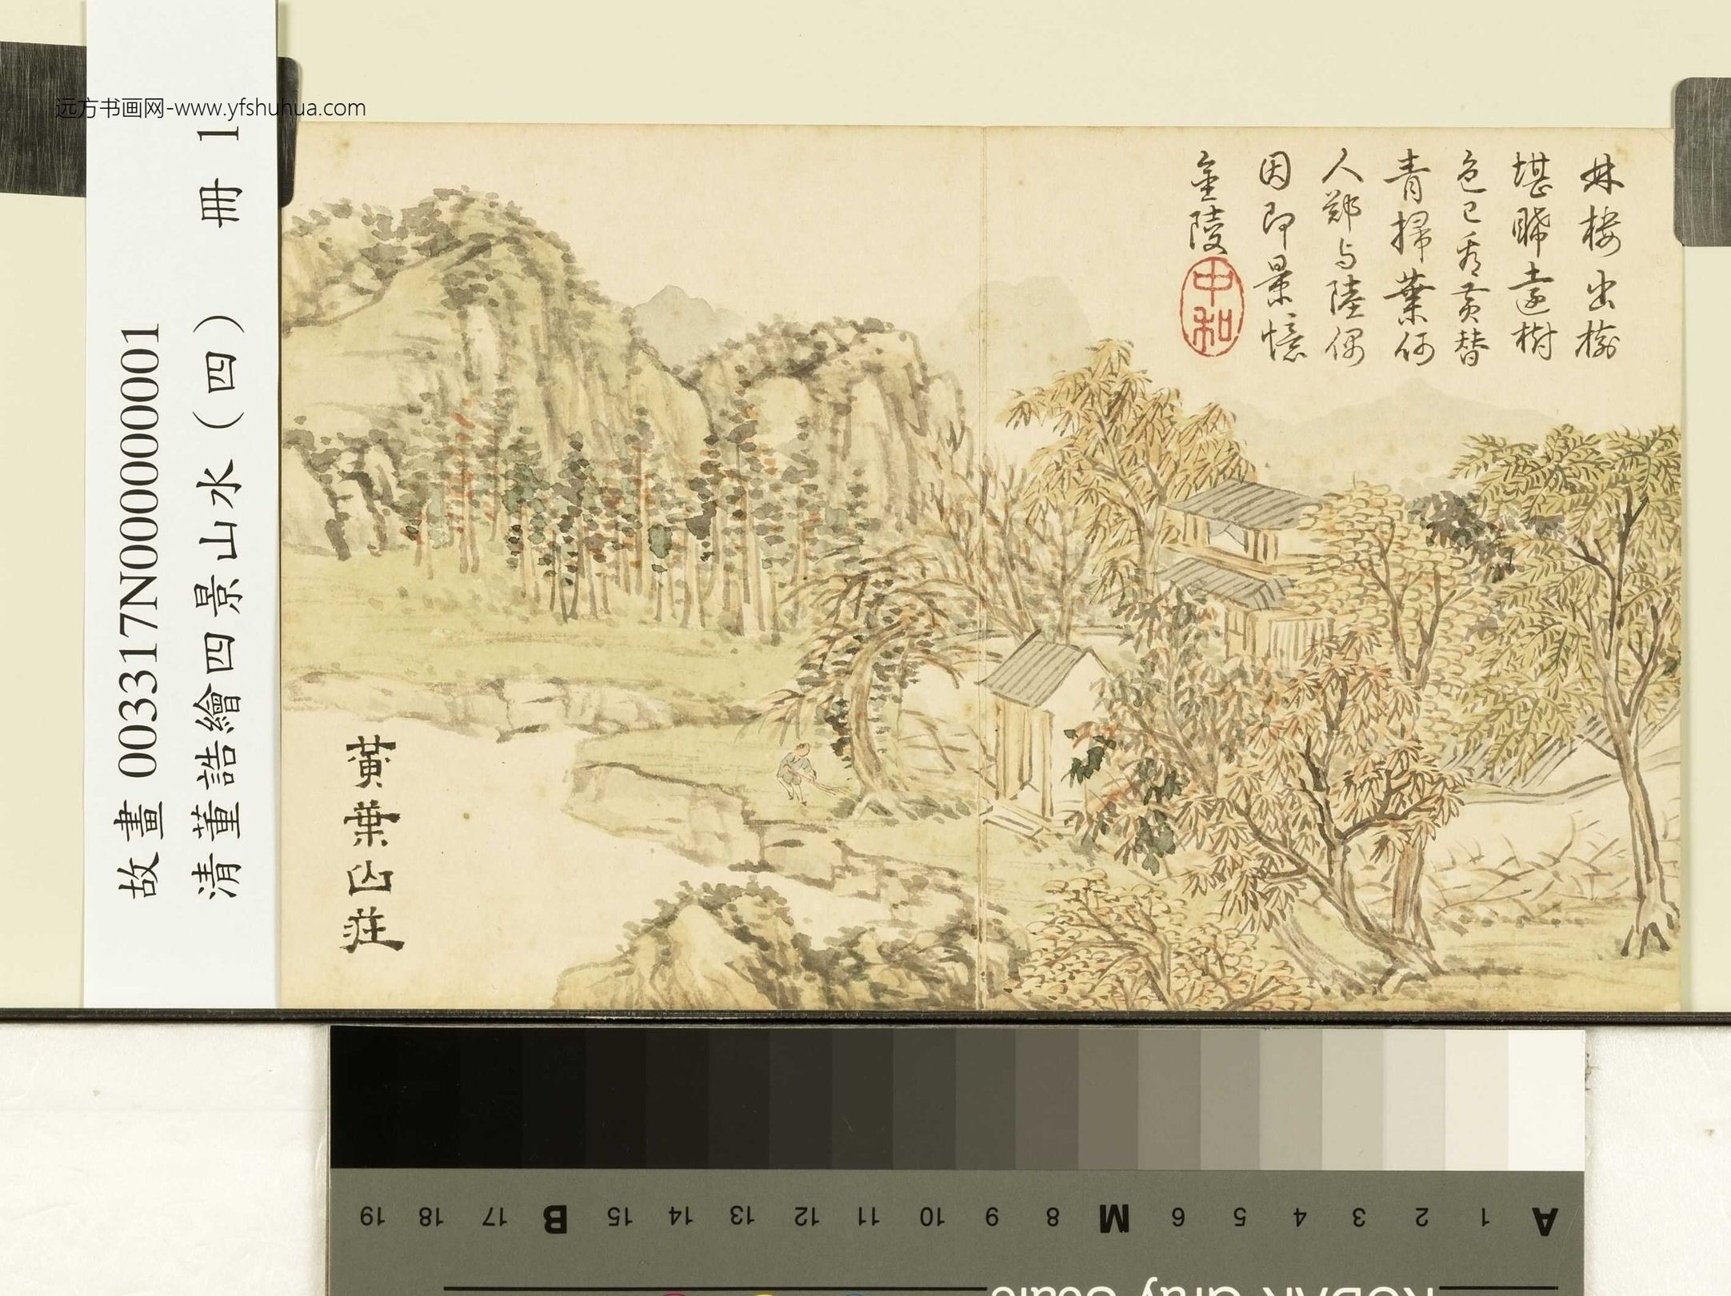 远方书画网-www.yfshuhua.com
故畫 003317N000000001
清董誥繪四景山水（四） 冊 1
林樓出樹
堪睎遠樹
色已看黄替
青掃葉何
人鄭与陸偶
因即景憶
金陵
中和
黄葉山莊
A 1 2 3 4 5 6 M 8 9 10 11 12 13 14 15 B 17 18 19
KODAK Gray Scale